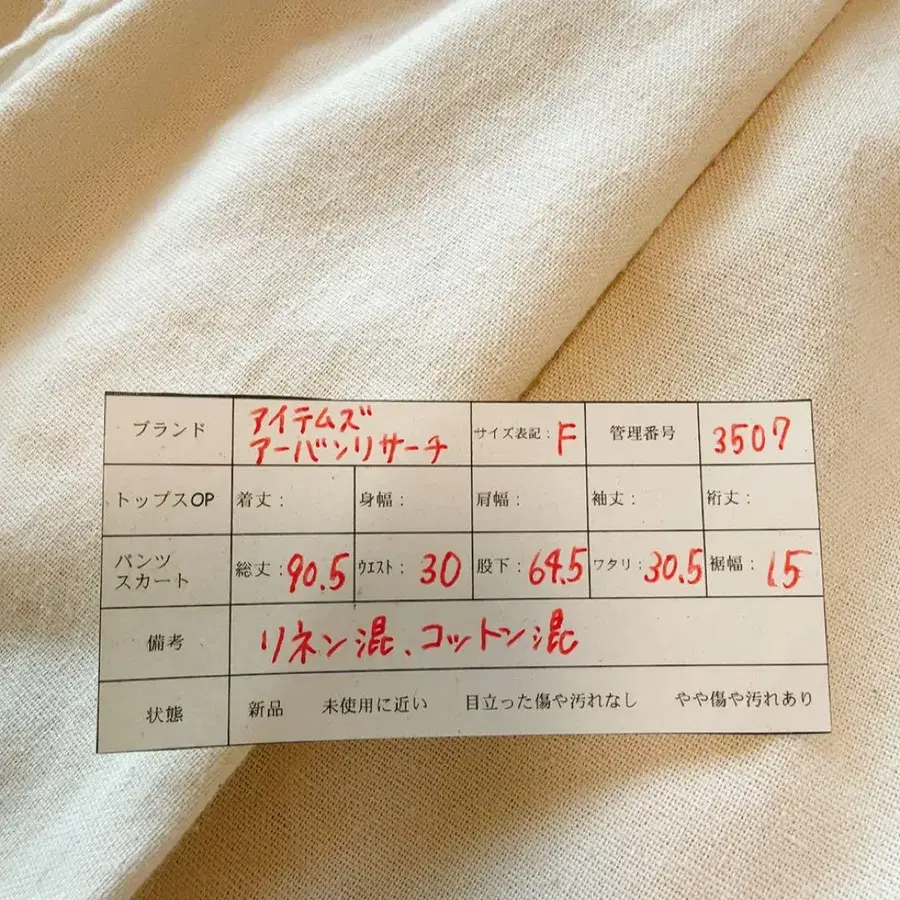 ブランド アイテムズ アーバンリサーチ サイズ表記：F 管理番号 3507
トップスOP 着丈： 身幅： 肩幅： 袖丈： 裄丈：
パンツ スカート 総丈：90.5 ウエスト：30 股下：64.5 ワタリ：30.5 裾幅：15
備考 リネン混、コットン混
状態 新品 未使用に近い 目立った傷や汚れなし やや傷や汚れあり